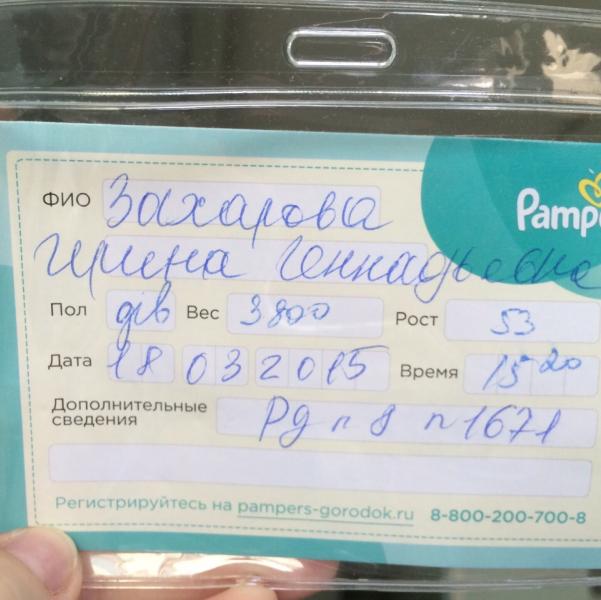 Pampe
ФИО Захарова
Ирина Геннадьевна
Пол дев Вес 3800 Рост 53
Дата 18 03 2015 Время 15 20
Дополнительные сведения Рд п 8 п 1671
Регистрируйтесь на pampers-gorodok.ru 8-800-200-700-8